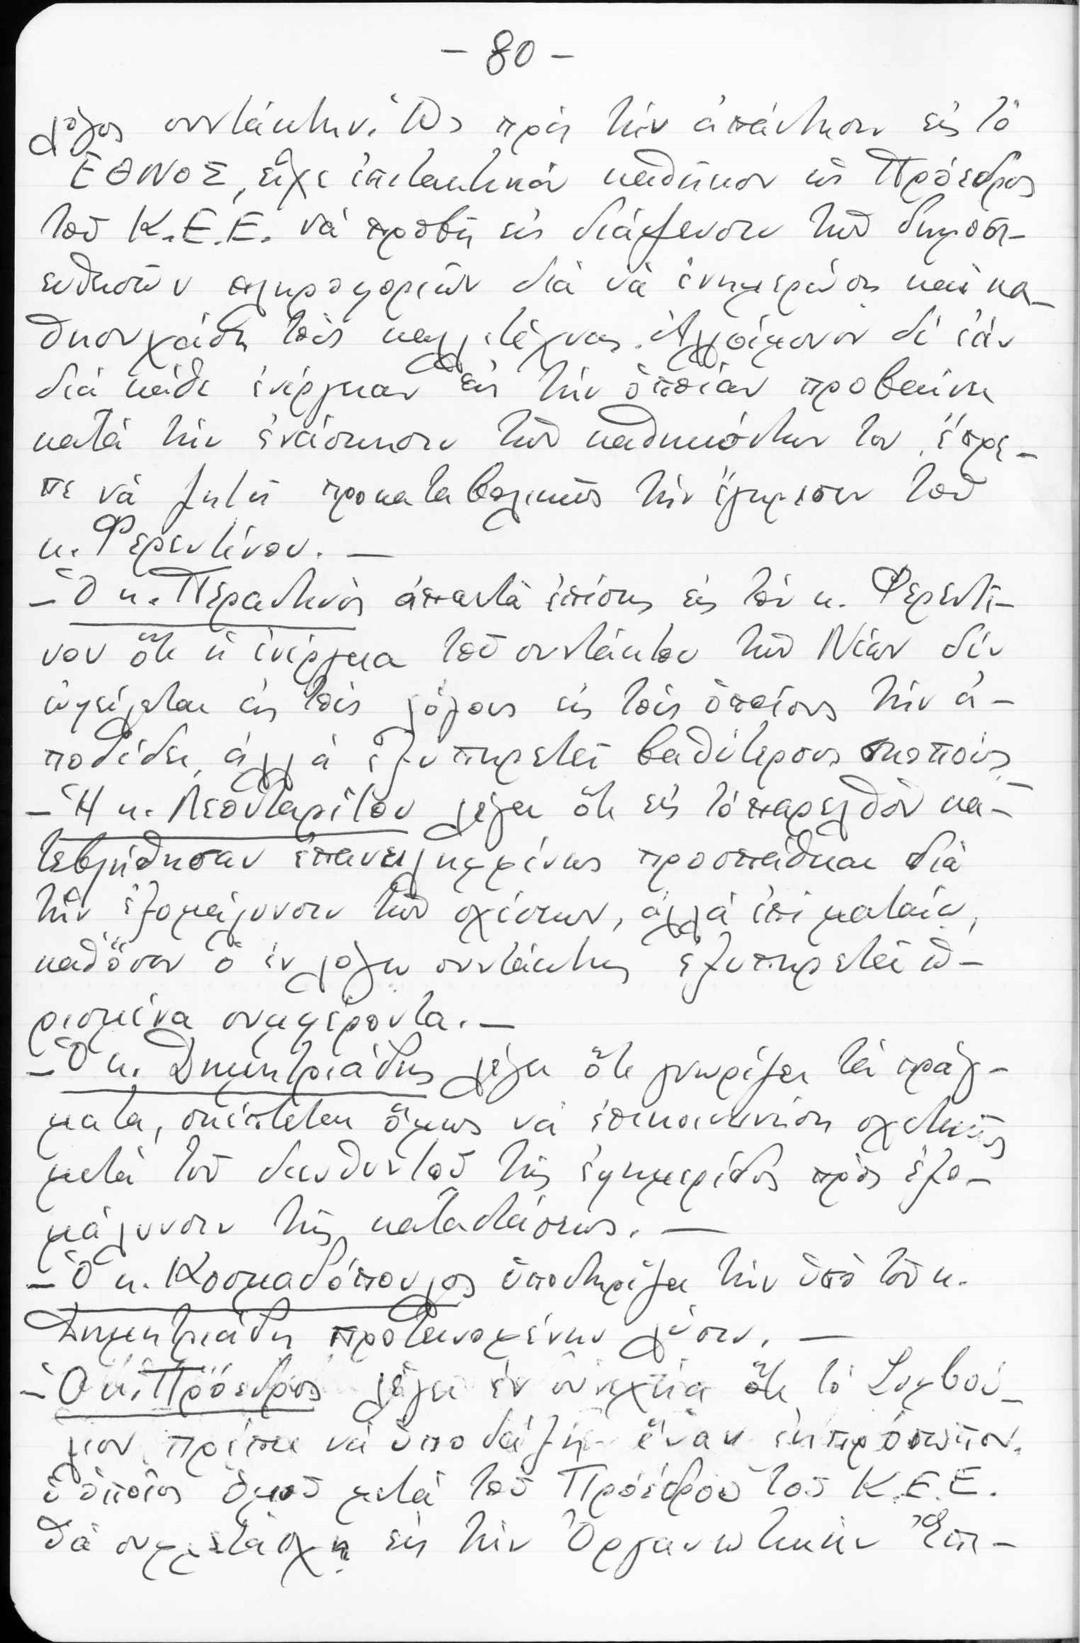 - 80 -
λόγος συντάκτην. Ὡς πρὸς τὴν ἀπάντησιν εἰς τὸ
ΕΘΝΟΣ, εἶχε ἐπιτακτικὸν καθῆκον ὡς Πρόεδρος
τοῦ Κ.Ε.Ε. νὰ προβῇ εἰς διάψευσιν τῶν δημοσι-
ευθεισῶν πληροφοριῶν διὰ νὰ ἐνημερώσῃ καὶ κα-
θησυχάσῃ τοὺς καλλιτέχνας. Ἀλλοίμονον δὲ ἐὰν
διὰ κάθε ἐνέργειαν εἰς τὴν ὁποίαν προβαίνει
κατὰ τὴν ἐνάσκησιν τῶν καθηκόντων του, ἔπρε-
πε νὰ ζητῇ προκαταβολικῶς τὴν ἔγκρισιν τοῦ
κ. Φερεντίνου. -
- Ὁ κ. Περαντινὸς ἀπαντᾶ ἐπίσης εἰς τὸν κ. Φερεντῖ-
νον ὅτι ἡ ἐνέργεια τοῦ συντάκτου τῶν Νέων δὲν
ὠφείλεται εἰς τοὺς λόγους εἰς τοὺς ὁποίους τὴν ἀ-
ποδίδει, ἀλλὰ ἐξυπηρετεῖ βαθύτερους σκοπούς.
- Ἡ κ. Λεονταρίτου λέγει ὅτι εἰς τὸ παρελθὸν κα-
τεβλήθησαν ἐπανειλημμένως προσπάθειαι διὰ
τὴν ἐξομάλυνσιν τῶν σχέσεων, ἀλλὰ ἐπὶ ματαίῳ,
καθ' ὅσον ὁ ἐν λόγῳ συντάκτης ἐξυπηρετεῖ ὡ-
ρισμένα συμφέροντα. -
- Ὁ κ. Δημητριάδης λέγει ὅτι γνωρίζει τὰ πράγ-
ματα, σκέπτεται ὅμως νὰ ἐπικοινωνήσῃ σχετικῶς
μετὰ τοῦ διευθυντοῦ τῆς ἐφημερίδος πρὸς ἐξο-
μάλυνσιν τῆς καταστάσεως. -
- Ὁ κ. Κοσμαδόπουλος ὑποστηρίζει τὴν ὑπὸ τοῦ κ.
Δημητριάδη προτεινομένην λύσιν. -
- Ὁ κ. Πρόεδρος λέγει ἐν συνεχείᾳ ὅτι τὸ Συμβού-
λιον πρέπει νὰ ὑποδείξῃ ἕναν ἐκπρόσωπον,
ὁ ὁποῖος ὁμοῦ μετὰ τοῦ Προέδρου τοῦ Κ.Ε.Ε.
θὰ συμμετάσχῃ εἰς τὴν Ὀργανωτικὴν Ἐπι-